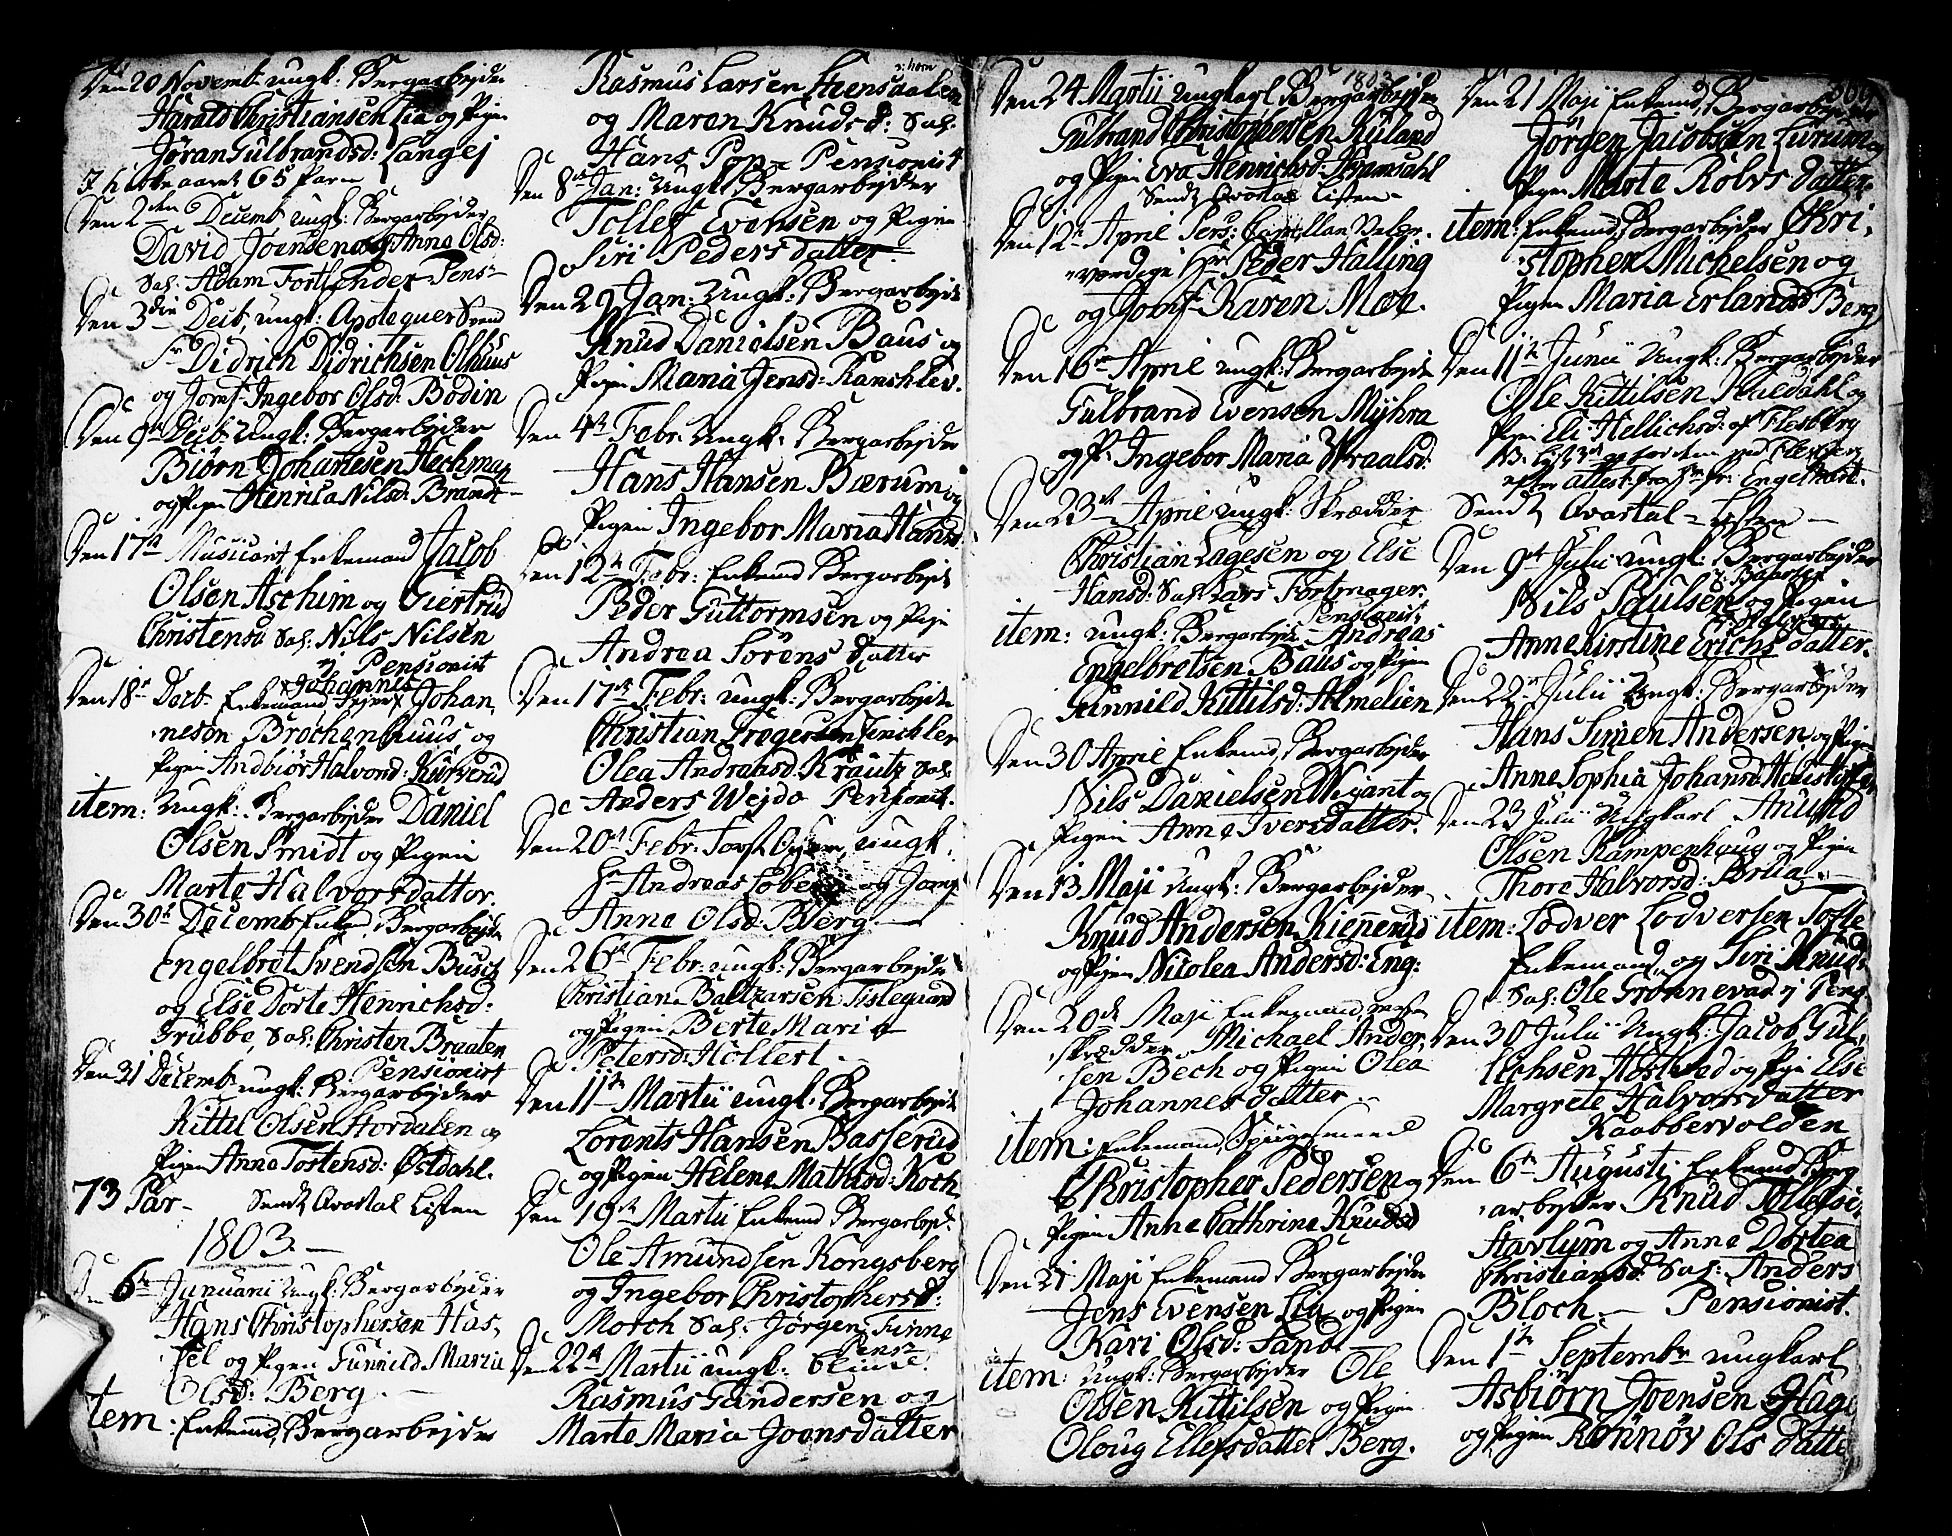 Den 20 Novemb. ungk: Bergarbejder
Harald Christiansen Lia og Pigen
Jøran Gulbrandsd: Langej
I Kirkeaaret 65 Parn
Den 2den Decemb. ungk: Bergarbejder
David Joensen og Anne Olsd:
Sal: Adam Fortschider Pens:
Den 3die Decb. ungk: Apotequer Svend
Sr Didrich Didrichsen Olhuus
og Jomf. Ingebor Olsd. Bødin
Den 9de Decb. Ungk: Bergarbejder
Biørn Johannesen Hechman
og Pigen Henrica Nilsd. Brandt
Den 17de Musicant, Enkemand Jacob
Olsen Aschim og Giertrud
Christensd Sal: Nils Nilsen
Pensionist
Johannes
Den 18de Decb. Enkemand Johan,
nesen Brochenhuus og
Pigen Andbiør Halvorsd: Kurverud
item: Ungk: Bergarbejder Daniel
Olsen Smidt og Pigen
Marte Halvorsdatter.
Den 30te Decemb Enkem. Bergarbejder
Engelbret Svendsen Busch
og Else Dorte Henrichsd:
Grubbe, Sal: Christen Braaten
Pensionist
Den 31 Decemb ungk: Bergarbejder
Kittil Olsen Hordalen og
Pigen Anne Tostensd: Østdahl.
73 Par - Sendt Qvartal Listen
1803. —
Den 6te Januarii Ungk: Bergarbejder
Hans Christophersen Has,
sel og Pigen Gunnild Maria
Olsd: Berg.
Item: Enkemd, Bergarbejder
Rasmus Larsen
og Maren Knudsd: Sal:
Hans Pop Pensionist
Den 8de Jan: Ungk: Bergarbejder
Tollef Evensen og Pigen
Siri Pedersdatter.
Den 29 Jan: Ungk: Bergarbejd:
Knud Danielsen Baus og
Pigen Maria Jensd: Ramshlev.
Den 4de Febr. Ungk: Bergarbejder
Hans Hansen Bærum og
Pigen Ingebor Maria Hansd
Den 12te Febr: Enkemd Bergarbejd:
Peder Guttormsen og Pigen
Andrea Sørens datter
Den 17de Febr: ungk: Bergarbejd:
Christian Trøgersen Finchler
Olea Andreasd: Krautz Sal:
Anders Wejdo Pensionist.
Den 20de Febr: ungk:
Hr Andreas Soberg og Jomf
Anne Olsd. Berg.
Den 26de Febr: ungk: Bergarbejder
Christian Baltzarsen Tislegaard
og Pigen Berte Maria
Petersd: Hollert.
Den 11te Martii ungk: Bergarbejd:
Lorents Hansen Basserud
og Pigen Helene Mathisd: Koch
Den 19de Martii Enkemd Bergarbejd:
Ole Amundsen Kongsberg
og Ingebor Christophersd:
Morch Sal: Jørgen Finne
Pens:
Den 22de Martii ungk:
Rasmus Gundersen og
Marte Maria Joensdatter
1803
Den 24 Martii Ungkarl Bergarbejder
Gulbrand Christophersen Ruland
og Pigen Eva Henrichsd:
Sendt Qvartal Listen
Den 12te April Pers: Capellan Velær-
værdige Hr Peder Halling
og Jomf. Karen Moe.
Den 16de April ungk: Bergarbejder
Gulbrand Evensen Myhra
og P. Ingebor Maria
Den 23de April ungk: Skrædder
Christian Lagesen og Else
Hansd: Sal: Lars Fortmager,
Pensionist
item: ungk: Bergarbejd: Andreas
Engelbretsen Baus og Pigen
Gunnild Kittilsd: Almelien
Den 30 April Enkemd, Bergarbejder
Nils Danielsen Wigant og
Pigen Anne Iversdatter.
Den 13 Maji Ungk: Bergarbejder
Knud Andersen Kiennerud
og Pigen Nicolea Andersd: Eng:
Den 20de Maji Enkemand,
skrædder Michael Ander,
sen Bech og Pigen Olea
Johannesdatter.
item: Enkemand,
Christopher Pedersen og
Pigen Anne Cathrine Knudsd
Den 21 Maji Enkemand Bergarbejder
Jens Evensen Lia og Pigen
Kari Olsd: Sand
item: ungk: Bergarbejder Ole
Olsen Kittilsen og Pigen
Oloug Ellefsdatter Berg.
Den 21 Maji Enkemd, Bergarbejder
Jørgen Jacobsen Lurum og
Pigen Marte Rolvs datter.
item: Enkemd, Bergarbejder Chri,
stopher Michelsen og
Pigen Maria Erlandsd Berg
Den 11te Junii Ungk: Bergarbejder
Ole Kittilsen og
Pigen Eli Hellichsd: af Flesberg
efter Attest fra Hr Engelhart.
Sendt Qvartal Listen —
Den 9de Julii ungk: Bergarbejder
Nils Paulsen og Pigen
Anne Kirstine Erichs datter.
Den 22de Julii Ungk: Bergarbejder
Hans Simen Andersen og Pigen
Anne Sophia Johansd
Den 23 Julii Ungkarl Anund
Olsen Kampenhoug og Pigen
Thore Halvorsd: Brua.
item: Lodver Lodversen Tofte
Enkemand og Siri Knudsd:
Sal: Ole Grønnevad Pens.
Den 30 Julii Ungk: Jacob Gul,
lichsen og Pigen Else
Margrete Halvorsdatter
Raabbervolden
Den 6te Augusti Enkemd, Berg
arbejder Knud Tollefsen
Havlum og Anne Dortea
Christiansd: Sal: Anders
Bloch. — Pensionist.
Den 1te Septembr ungkarl
Asbiørn Joensen Hage
og Pigen Rønnøv Ols datter